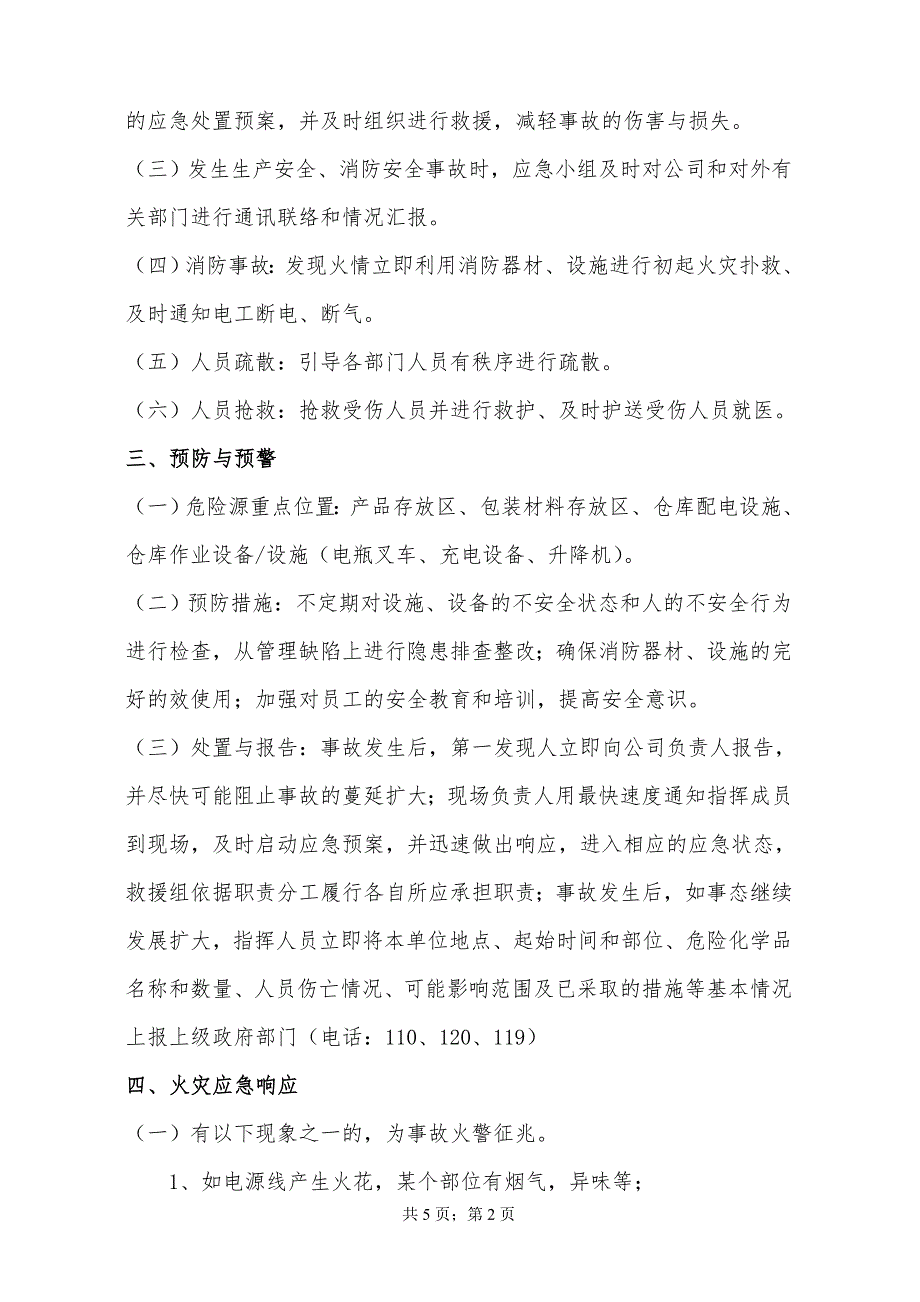 的应急处置预案，并及时组织进行救援，减轻事故的伤害与损失。
（三）发生生产安全、消防安全事故时，应急小组及时对公司和对外有
关部门进行通讯联络和情况汇报。
（四）消防事故：发现火情立即利用消防器材、设施进行初起火灾扑救、
及时通知电工断电、断气。
（五）人员疏散：引导各部门人员有秩序进行疏散。
（六）人员抢救：抢救受伤人员并进行救护、及时护送受伤人员就医。
三、预防与预警
（一）危险源重点位置：产品存放区、包装材料存放区、仓库配电设施、
仓库作业设备/设施（电瓶叉车、充电设备、升降机）。
（二）预防措施：不定期对设施、设备的不安全状态和人的不安全行为
进行检查，从管理缺陷上进行隐患排查整改；确保消防器材、设施的完
好的效使用；加强对员工的安全教育和培训，提高安全意识。
（三）处置与报告：事故发生后，第一发现人立即向公司负责人报告，
并尽快可能阻止事故的蔓延扩大；现场负责人用最快速度通知指挥成员
到现场，及时启动应急预案，并迅速做出响应，进入相应的应急状态，
救援组依据职责分工履行各自所应承担职责；事故发生后，如事态继续
发展扩大，指挥人员立即将本单位地点、起始时间和部位、危险化学品
名称和数量、人员伤亡情况、可能影响范围及已采取的措施等基本情况
上报上级政府部门（电话：110、120、119）
四、火灾应急响应
（一）有以下现象之一的，为事故火警征兆。
1、如电源线产生火花，某个部位有烟气，异味等；
共 5 页；第 2 页